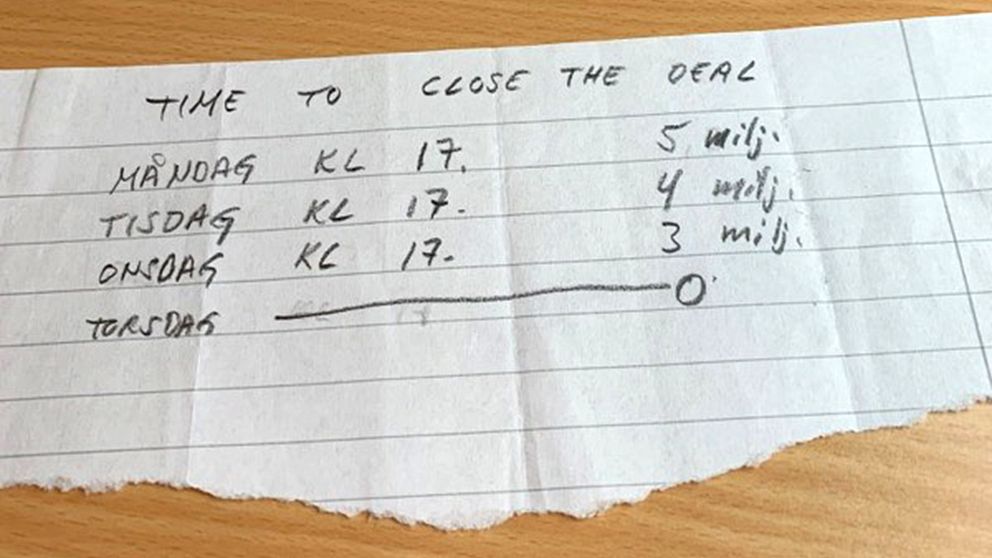 TIME TO CLOSE THE DEAL
MÅNDAG KL 17. 5 milj.
TISDAG KL 17. 4 milj.
ONSDAG KL 17. 3 milj.
TORSDAG 0